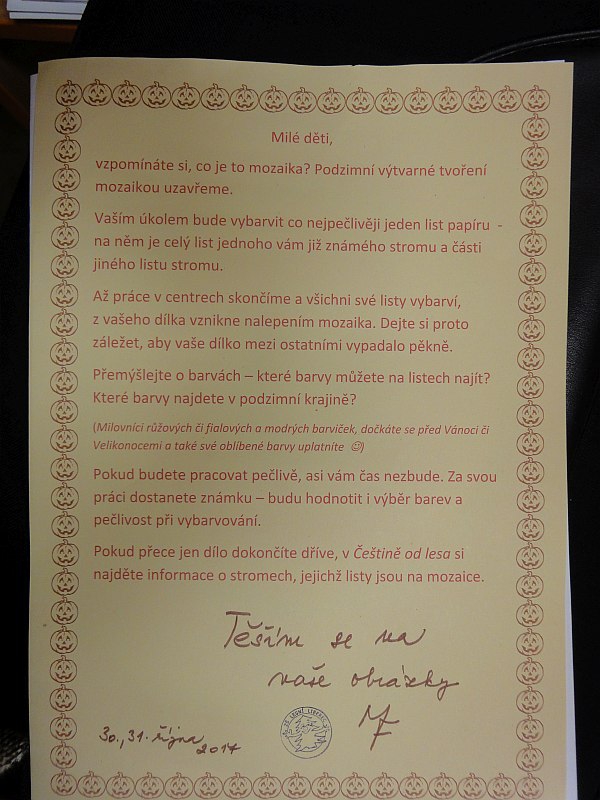 Milé děti,
vzpomínáte si, co je to mozaika? Podzimní výtvarné tvoření
mozaikou uzavřeme.
Vaším úkolem bude vybarvit co nejpečlivěji jeden list papíru -
na něm je celý list jednoho vám již známého stromu a části
jiného listu stromu.
Až práce v centrech skončíme a všichni své listy vybarví,
z vašeho dílka vznikne nalepením mozaika. Dejte si proto
záležet, aby vaše dílko mezi ostatními vypadalo pěkně.
Přemýšlejte o barvách – které barvy můžete na listech najít?
Které barvy najdete v podzimní krajině?
(Milovníci růžových či fialových a modrých barviček, dočkáte se před Vánoci či
Velikonocemi a také své oblíbené barvy uplatníte ☺)
Pokud budete pracovat pečlivě, asi vám čas nezbude. Za svou
práci dostanete známku – budu hodnotit i výběr barev a
pečlivost při vybarvování.
Pokud přece jen dílo dokončíte dříve, v Češtině od lesa si
najděte informace o stromech, jejichž listy jsou na mozaice.
Těším se na
vaše obrázky
30., 31. října
2017